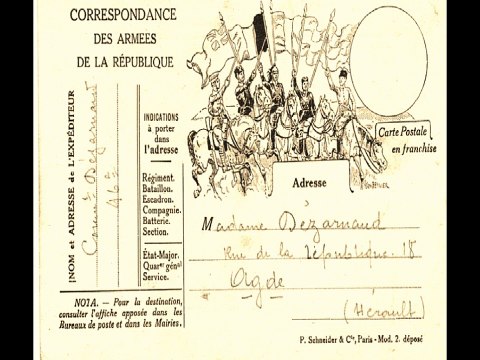 CORRESPONDANCE
DES ARMEES
DE LA RÉPUBLIQUE
NOM et ADRESSE de L'EXPÉDITEUR
Dezarnaud
46e
INDICATIONS
à porter
dans
l'adresse
Régiment.
Bataillon.
Escadron.
Compagnie.
Batterie.
Section.
État-Major.
Quar er génal
Service.
NOTA. - Pour la destination,
consulter l'affiche apposée dans les
Bureaux de poste et dans les Mairies.
Carte Postale
en franchise
Adresse
Madame Dezarnaud
Rue de la République 18
Agde
(Hérault)
P. Schneider & Cie, Paris - Mod. 2. déposé